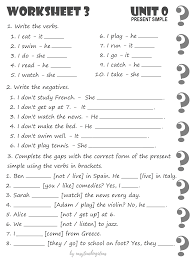 WORKSHEET 3
UNIT 0
PRESENT SIMPLE
1. Write the verbs.
1. I eat - it ________ 6. I play - he ________
2. I swim - he ________ 7. I run - it ________
3. I do - she ________ 8. I go - she ________
4. I read - she ________ 9. I tidy - he ________
5. I watch - she ________ 10. I take - she ________
2. Write the negatives.
1. I don't study French. - She ________
2. I don't get up at 7. - It ________
3. I don't watch the news. - She ________
4. I don't make the bed. - He ________
5. I don't swim very well. - She ________
3. Complete the gaps with the correct form of the present simple using the verbs in brackets.
1. Ben ________ [not / live] in Spain. He ________ [live] in France.
2. ________ [you / like] comedies? Yes, I ________.
3. Sarah ________ [watch] the news every day.
4. Adam ________ [play] the violin? No, he ________.
5. Alice ________ [not / get up] at 6.
6. We ________ [not / go] to work by
7. I ________ [come] from Greece.
8. ________ [they / go] to school on foot? Yes, they ________.